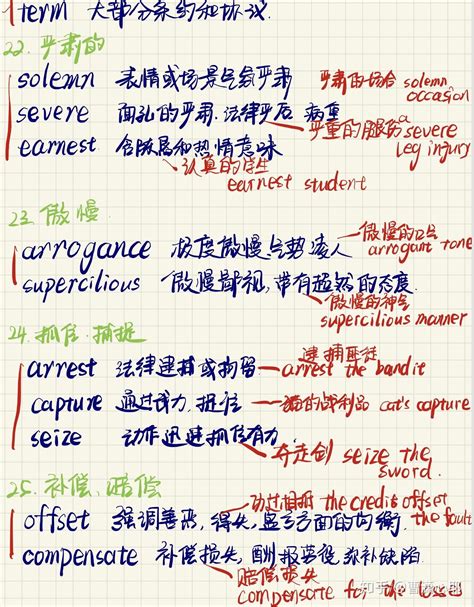 term 大部分条约和协议.
22. 严肃的
solemn 表情或场景气氛严肃 严肃的场合 solemn occasion
severe 面孔的严肃.法律严厉 病重 严重的腿伤 a severe leg injury
earnest 含做居和热情意味 认真的学生 earnest student
23. 傲慢
arrogance 极度傲慢气势凌人 傲慢的口气 arrogant tone
supercilious 傲慢鄙视,带有超然的态度. 傲慢的神气 supercilious manner
24. 抓住.捕捉
arrest 法律逮捕或拘留 逮捕匪徒 arrest the bandit
capture 通过武力.捉住 猫的战利品 cat's capture
seize 动作迅速抓住有力. 夺走剑 seize the sword.
25. 补偿.赔偿
offset 强调善恶,得失,方面的均衡. 功过相抵 the credit offset the fault
compensate 补偿损失,酬报劳役,弥补缺陷. 赔偿损失 compensate for the losses
知乎